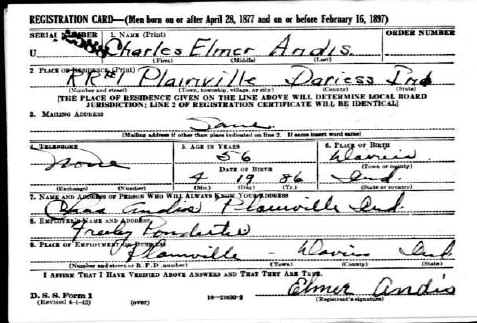 REGISTRATION CARD—(Men born on or after April 28, 1877 and on or before February 16, 1897)
SERIAL NUMBER 1. NAME (Print) ORDER NUMBER
U Charles Elmer Andis
(First) (Middle) (Last)
2. PLACE OF RESIDENCE (Print)
RR#1 Plainville Daviess Ind
(Number and street) (Town, township, village, or city) (County) (State)
[THE PLACE OF RESIDENCE GIVEN ON THE LINE ABOVE WILL DETERMINE LOCAL BOARD
JURISDICTION; LINE 2 OF REGISTRATION CERTIFICATE WILL BE IDENTICAL]
3. MAILING ADDRESS
Same
[Mailing address if other than place indicated on line 2. If same insert word same]
4. TELEPHONE 5. AGE IN YEARS 6. PLACE OF BIRTH
None 56
DATE OF BIRTH (Town or county)
4 19 86 Ind.
(Exchange) (Number) (Mo.) (Day) (Yr.) (State or country)
7. NAME AND ADDRESS OF PERSON WHO WILL ALWAYS KNOW YOUR ADDRESS
Chas Andis Plainville Ind.
8. EMPLOYER'S NAME AND ADDRESS
9. PLACE OF EMPLOYMENT OR BUSINESS
Plainville - Ind
(Number and street or R. F. D. number) (Town) (County) (State)
I AFFIRM THAT I HAVE VERIFIED ABOVE ANSWERS AND THAT THEY ARE TRUE.
Elmer Andis
D. S. S. Form 1
(Revised 4-1-42) (over) (Registrant's signature)